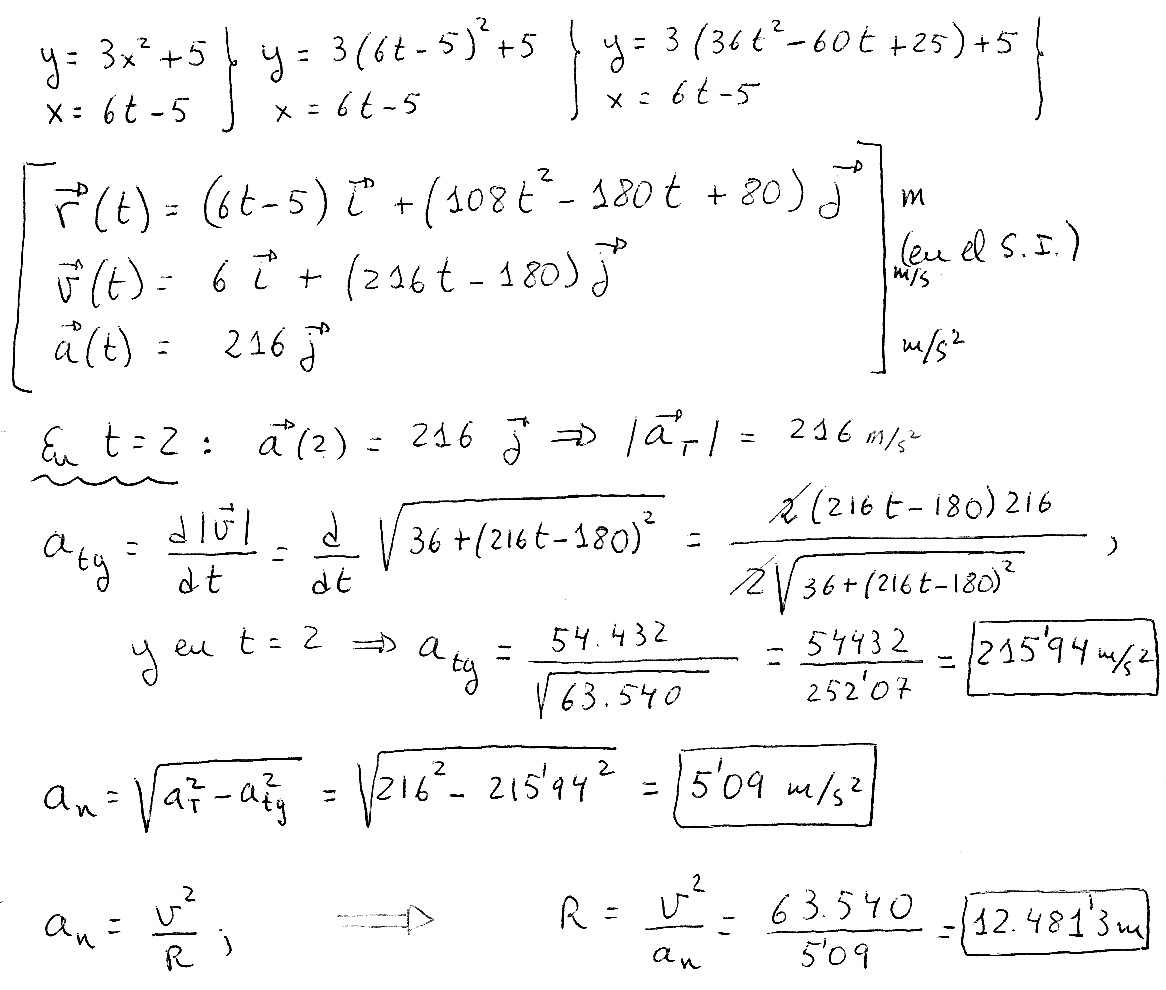 y = 3x² + 5 } y = 3(6t - 5)² + 5 } y = 3(36t² - 60t + 25) + 5 }
x = 6t - 5 x = 6t - 5 x = 6t - 5
r⃗(t) = (6t - 5) i⃗ + (108t² - 180t + 80) j⃗ m
(en el S.I.)
v⃗(t) = 6 i⃗ + (216t - 180) j⃗ m/s
a⃗(t) = 216 j⃗ m/s²
En t = 2 : a⃗(2) = 216 j⃗ ⇒ |a⃗_T| = 216 m/s²
a_tg = d|v⃗|/dt = d/dt √(36 + (216t - 180)²) = 2(216t - 180)216 / 2√(36 + (216t - 180)²) ,
y en t = 2 ⇒ a_tg = 54.432/√63.540 = 54432/252'07 = 215'94 m/s²
a_n = √(a_T² - a_tg²) = √(216² - 215'94²) = 5'09 m/s²
a_n = v²/R ; ⇒ R = v²/a_n = 63.540/5'09 = 12.481'3 m